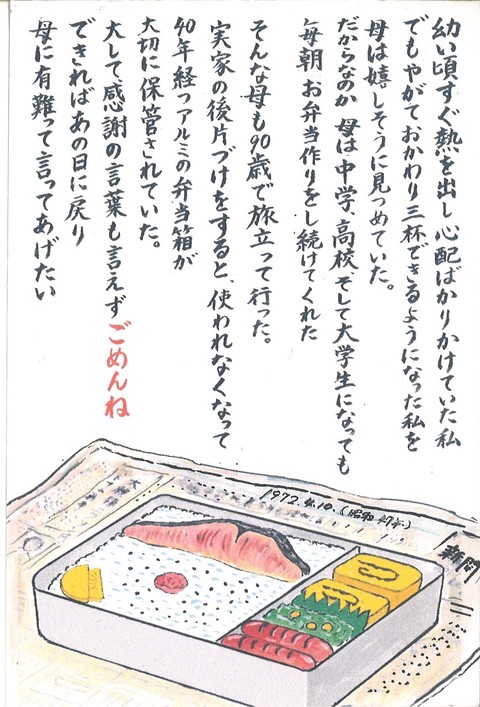 幼い頃すぐ熱を出し心配ばかりかけていた私
でもやがておかわり三杯できるようになった私を
母は嬉しそうに見つめていた。
だからなのか 母は中学、高校 そして大学生になっても
毎朝 お弁当作りをし続けてくれた
そんな母も90歳で旅立って行った。
実家の後片づけをすると、使われなくなって
40年経つアルミの弁当箱が
大切に保管されていた。
大して、感謝の言葉も言えず ごめんね
できればあの日に戻り
母に有難って言ってあげたい
1972.4.10.(昭和47年)
新聞